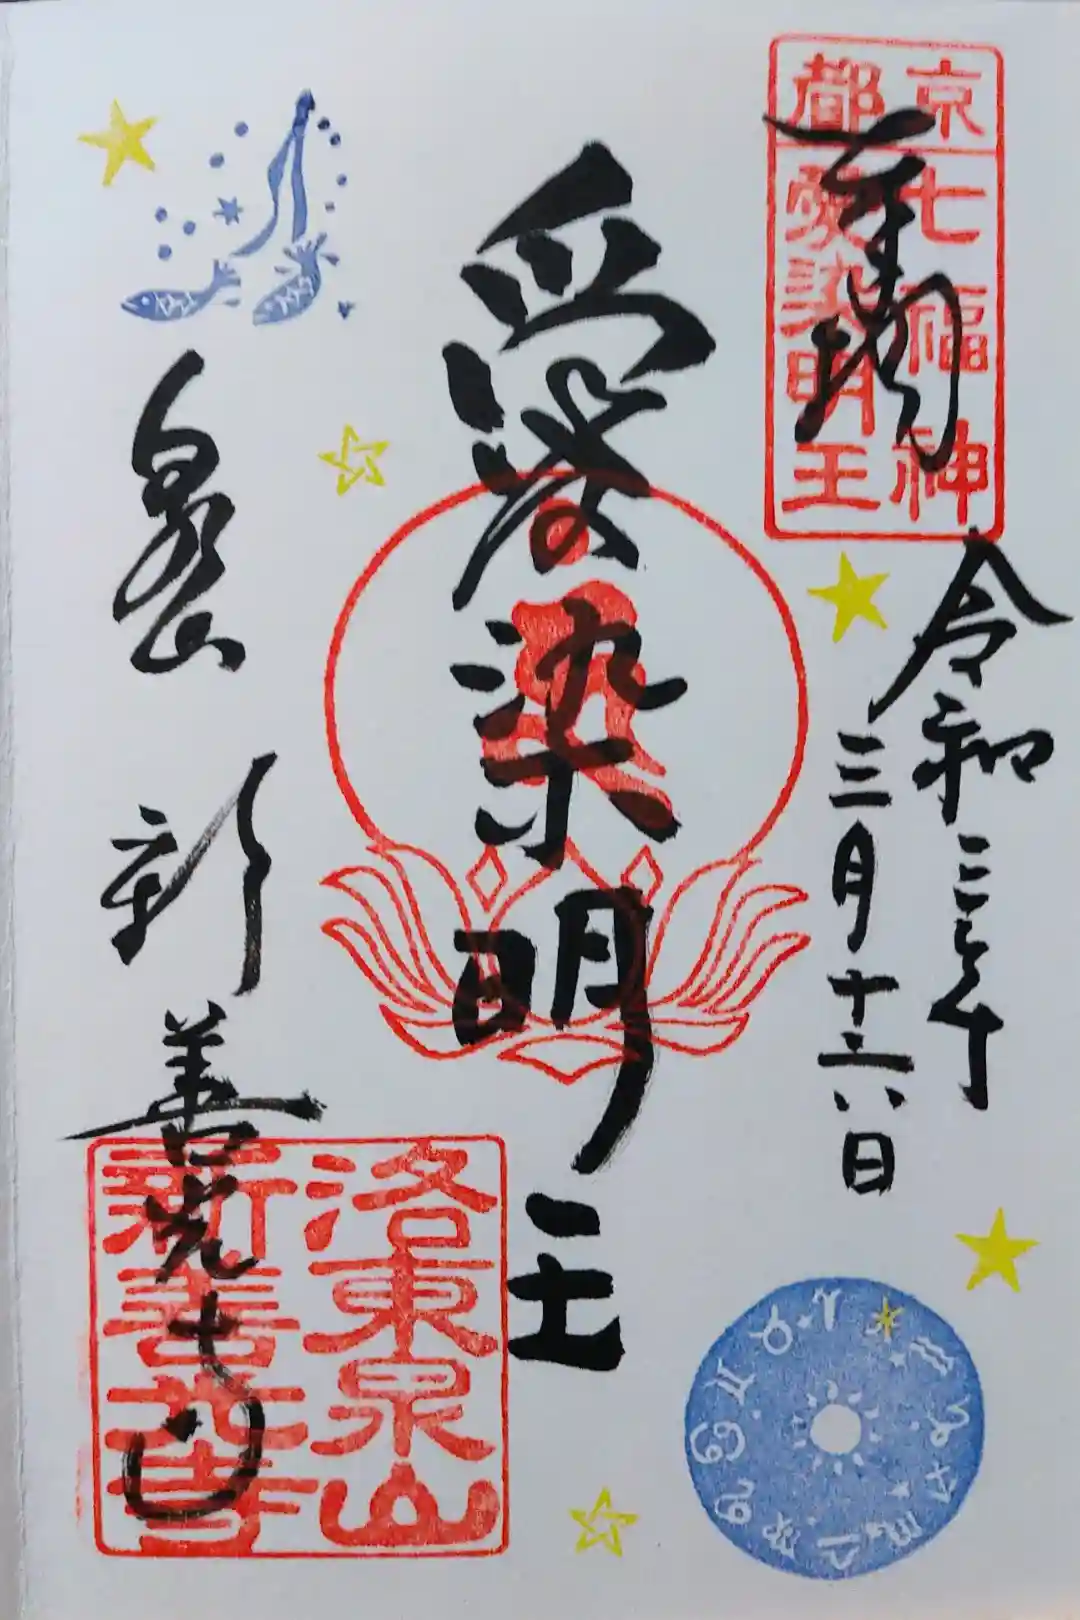 京都
七福神
愛染明王
奉拝
令和三年
三月十六日
愛染明王
泉山 新善光寺
洛東泉山
新善光寺